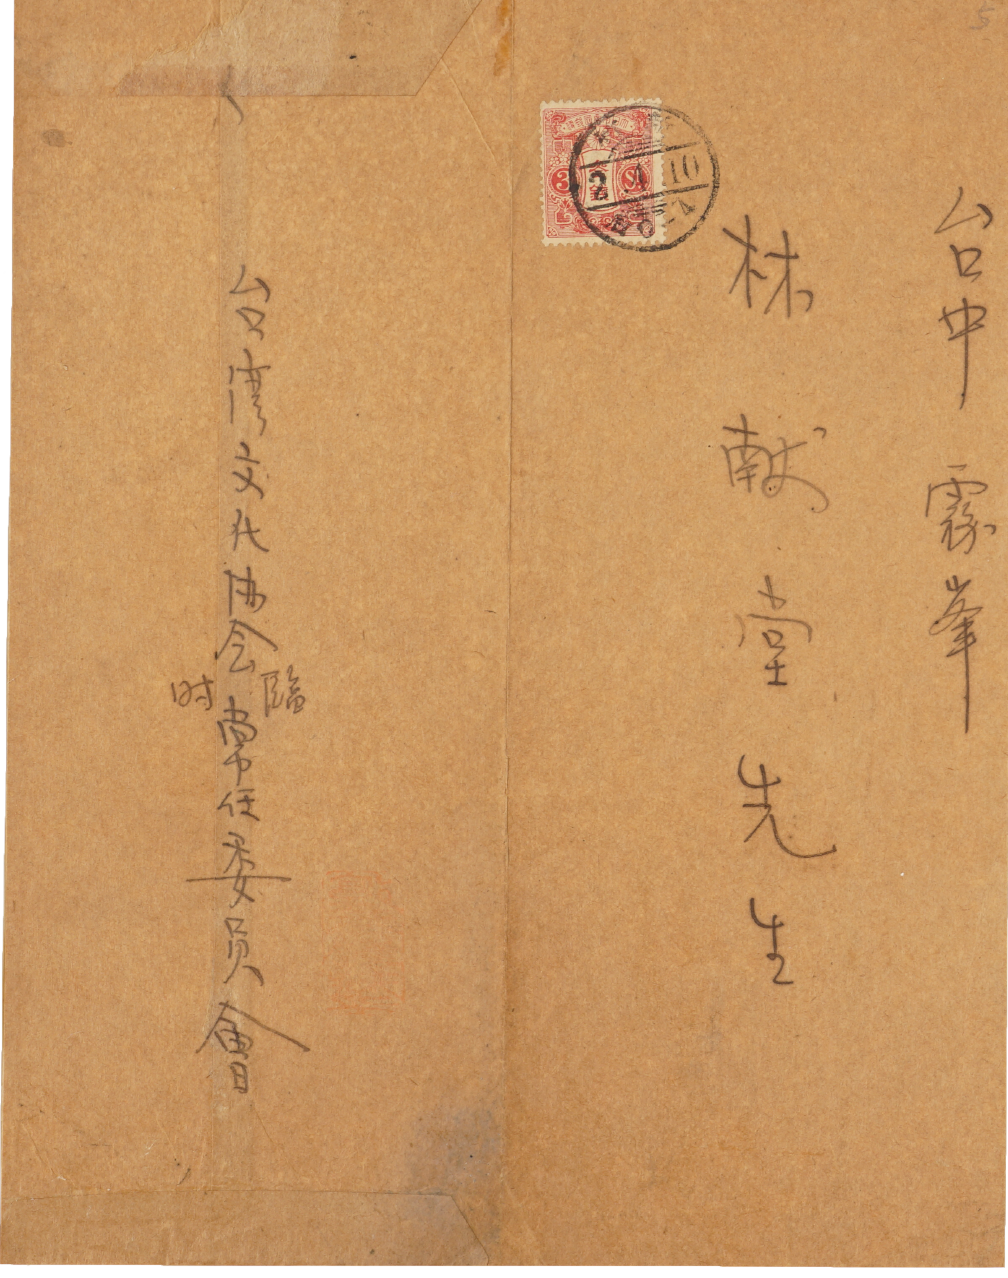 台中霧峯
林献堂先生
台湾文化协会臨时常任委員會
2.4.10